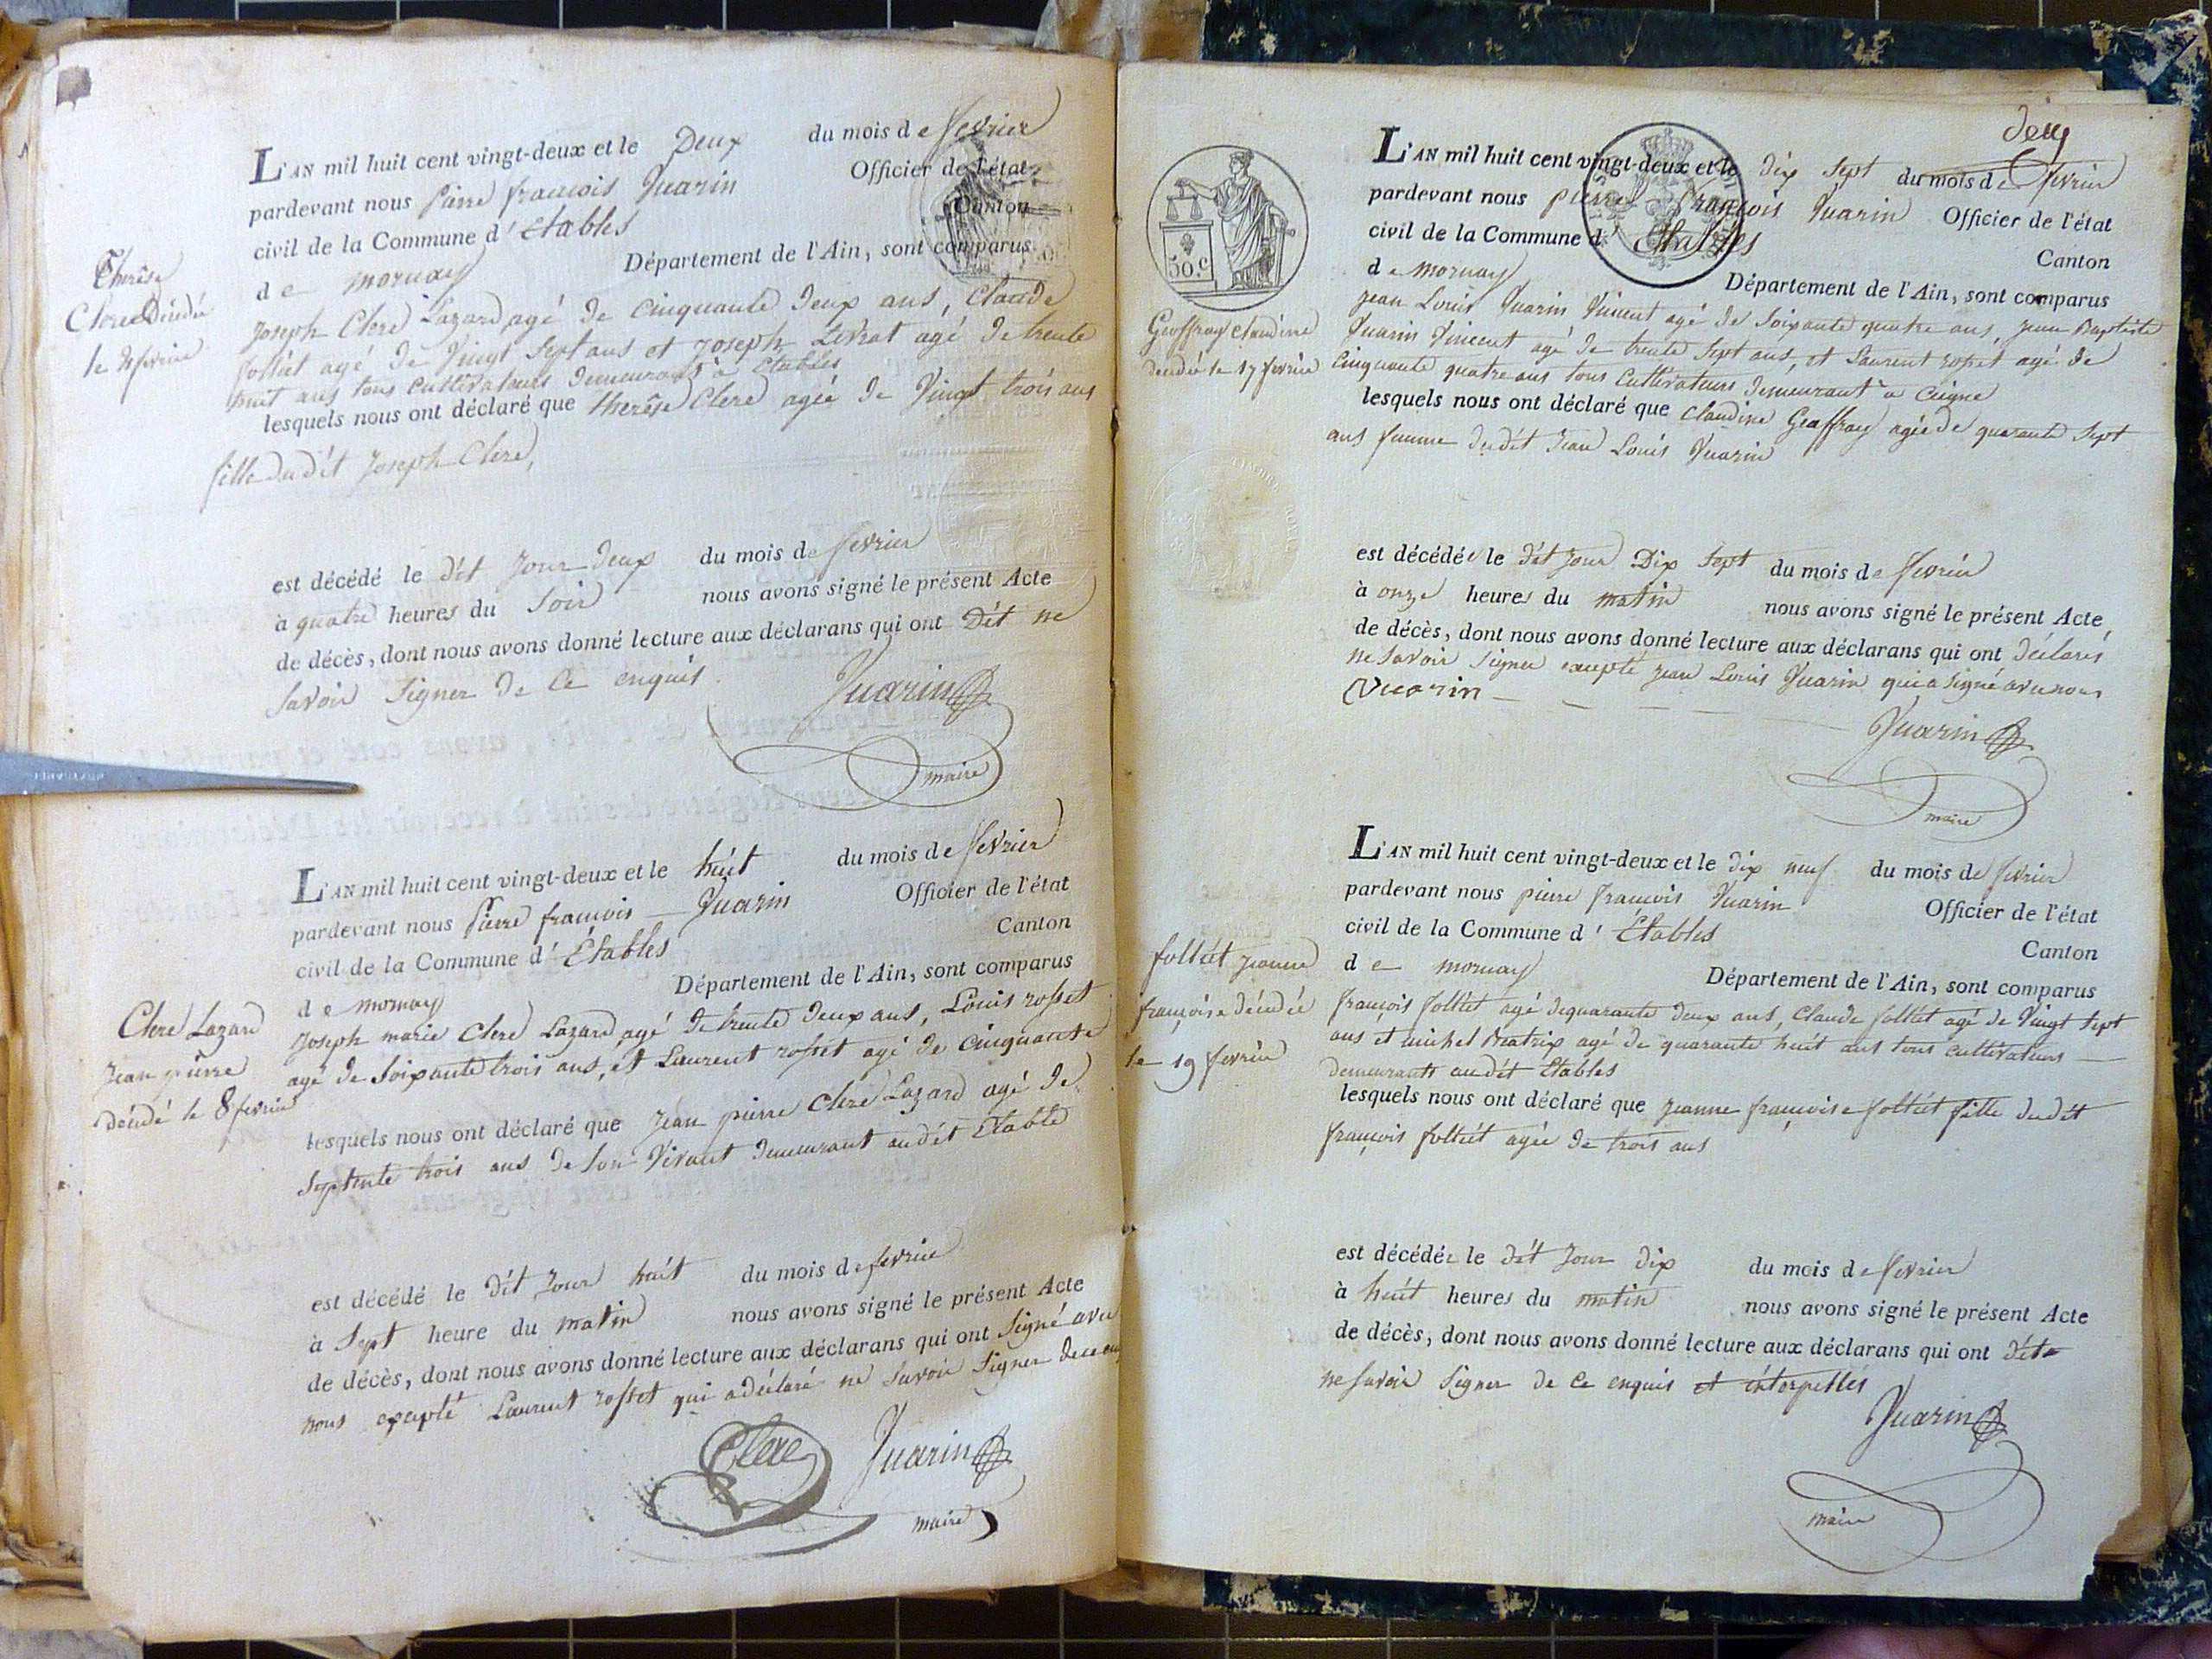 L'AN mil huit cent vingt-deux et le Deux du mois de fevrier
pardevant nous Pierre françois Vuarin Officier de l'état
civil de la Commune d' Etables Canton
de mornay Département de l'Ain, sont comparus
Joseph Clerc Lazard agé de cinquante deux ans, Claude
folliét agé de Vingt Sept ans et Joseph Levrat agé de trente
huit ans tous cultivateurs demeurants à Etables
lesquels nous ont déclaré que therèse Clerc agée de Vingt trois ans
fille du dit Joseph Clerc,
Therèse
Clerc Décédée
le 2 fevrier
est décédé le dit Jour Deux du mois de fevrier
à quatre heures du Soir nous avons signé le présent Acte
de décès, dont nous avons donné lecture aux déclarans qui ont Dit ne
Savoir Signer de Ce enquis.
Vuarin
maire
L'AN mil huit cent vingt-deux et le huit du mois de fevrier
pardevant nous Pierre françois Vuarin Officier de l'état
civil de la Commune d' Étables Canton
de mornay Département de l'Ain, sont comparus
Joseph marie Clerc Lazard agé de trente Deux ans, Louis rosset
agé de Soixante trois ans, et Laurent rosset agé de Cinquante
Clerc Lazard
Jean pierre
décédé le 8 fevrier
lesquels nous ont déclaré que Jean pierre Clerc Lazard agé de
Septente trois ans de Son Vivant demeurant audit Etable
est décédé le dit Jour huit du mois de fevrier
à Sept heure du matin nous avons signé le présent Acte
de décès, dont nous avons donné lecture aux déclarans qui ont Signé avec
nous excepté Laurent rosset qui a déclaré ne Savoir Signer de ce
Clerc Vuarin
maire
deux
L'AN mil huit cent vingt-deux et le dix Sept du mois de fevrier
pardevant nous pierre François Vuarin Officier de l'état
civil de la Commune d' Etables Canton
de mornay Département de l'Ain, sont comparus
50.c
Jean Louis Vuarin Vincent agé de Soixante quatre ans, Jean Baptiste
Vuarin Vincent agé de trente Sept ans, et Laurent rosset agé de
Cinquante quatre ans tous Cultivateurs demeurant à Ceigne
lesquels nous ont déclaré que Claudine Geoffray agée de quarante Sept
ans femme dudit Jean Louis Vuarin
Geoffray Claudine
décédée le 17 fevrier
est décédée le dit Jour Dix Sept du mois de fevrier
à onze heures du matin nous avons signé le présent Acte
de décès, dont nous avons donné lecture aux déclarans qui ont déclarés
ne Savoir Signer excepté Jean Louis Vuarin qui a Signé avec nous
Vuarin
Vuarin
maire
L'AN mil huit cent vingt-deux et le dix neuf du mois de fevrier
pardevant nous pierre françois Vuarin Officier de l'état
civil de la Commune d' Étables Canton
de mornay Département de l'Ain, sont comparus
françois folliét agé de quarante deux ans, Claude folliét agé de Vingt Sept
ans et michel Béatrix agé de quarante huit ans tous cultivateurs
demeurants audit Etables
folliét Jeanne
françoise décédée
le 19 fevrier
lesquels nous ont déclaré que Jeanne françoise folliét fille dudit
françois folliét agée de trois ans
est décédée le dit Jour dix du mois de fevrier
à huit heures du matin nous avons signé le présent Acte
de décès, dont nous avons donné lecture aux déclarans qui ont dit
ne Savoir Signer de Ce enquis et interpellés
Vuarin
maire